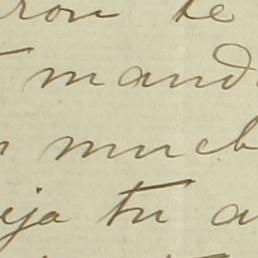 ron te
mand
much
ija tu a